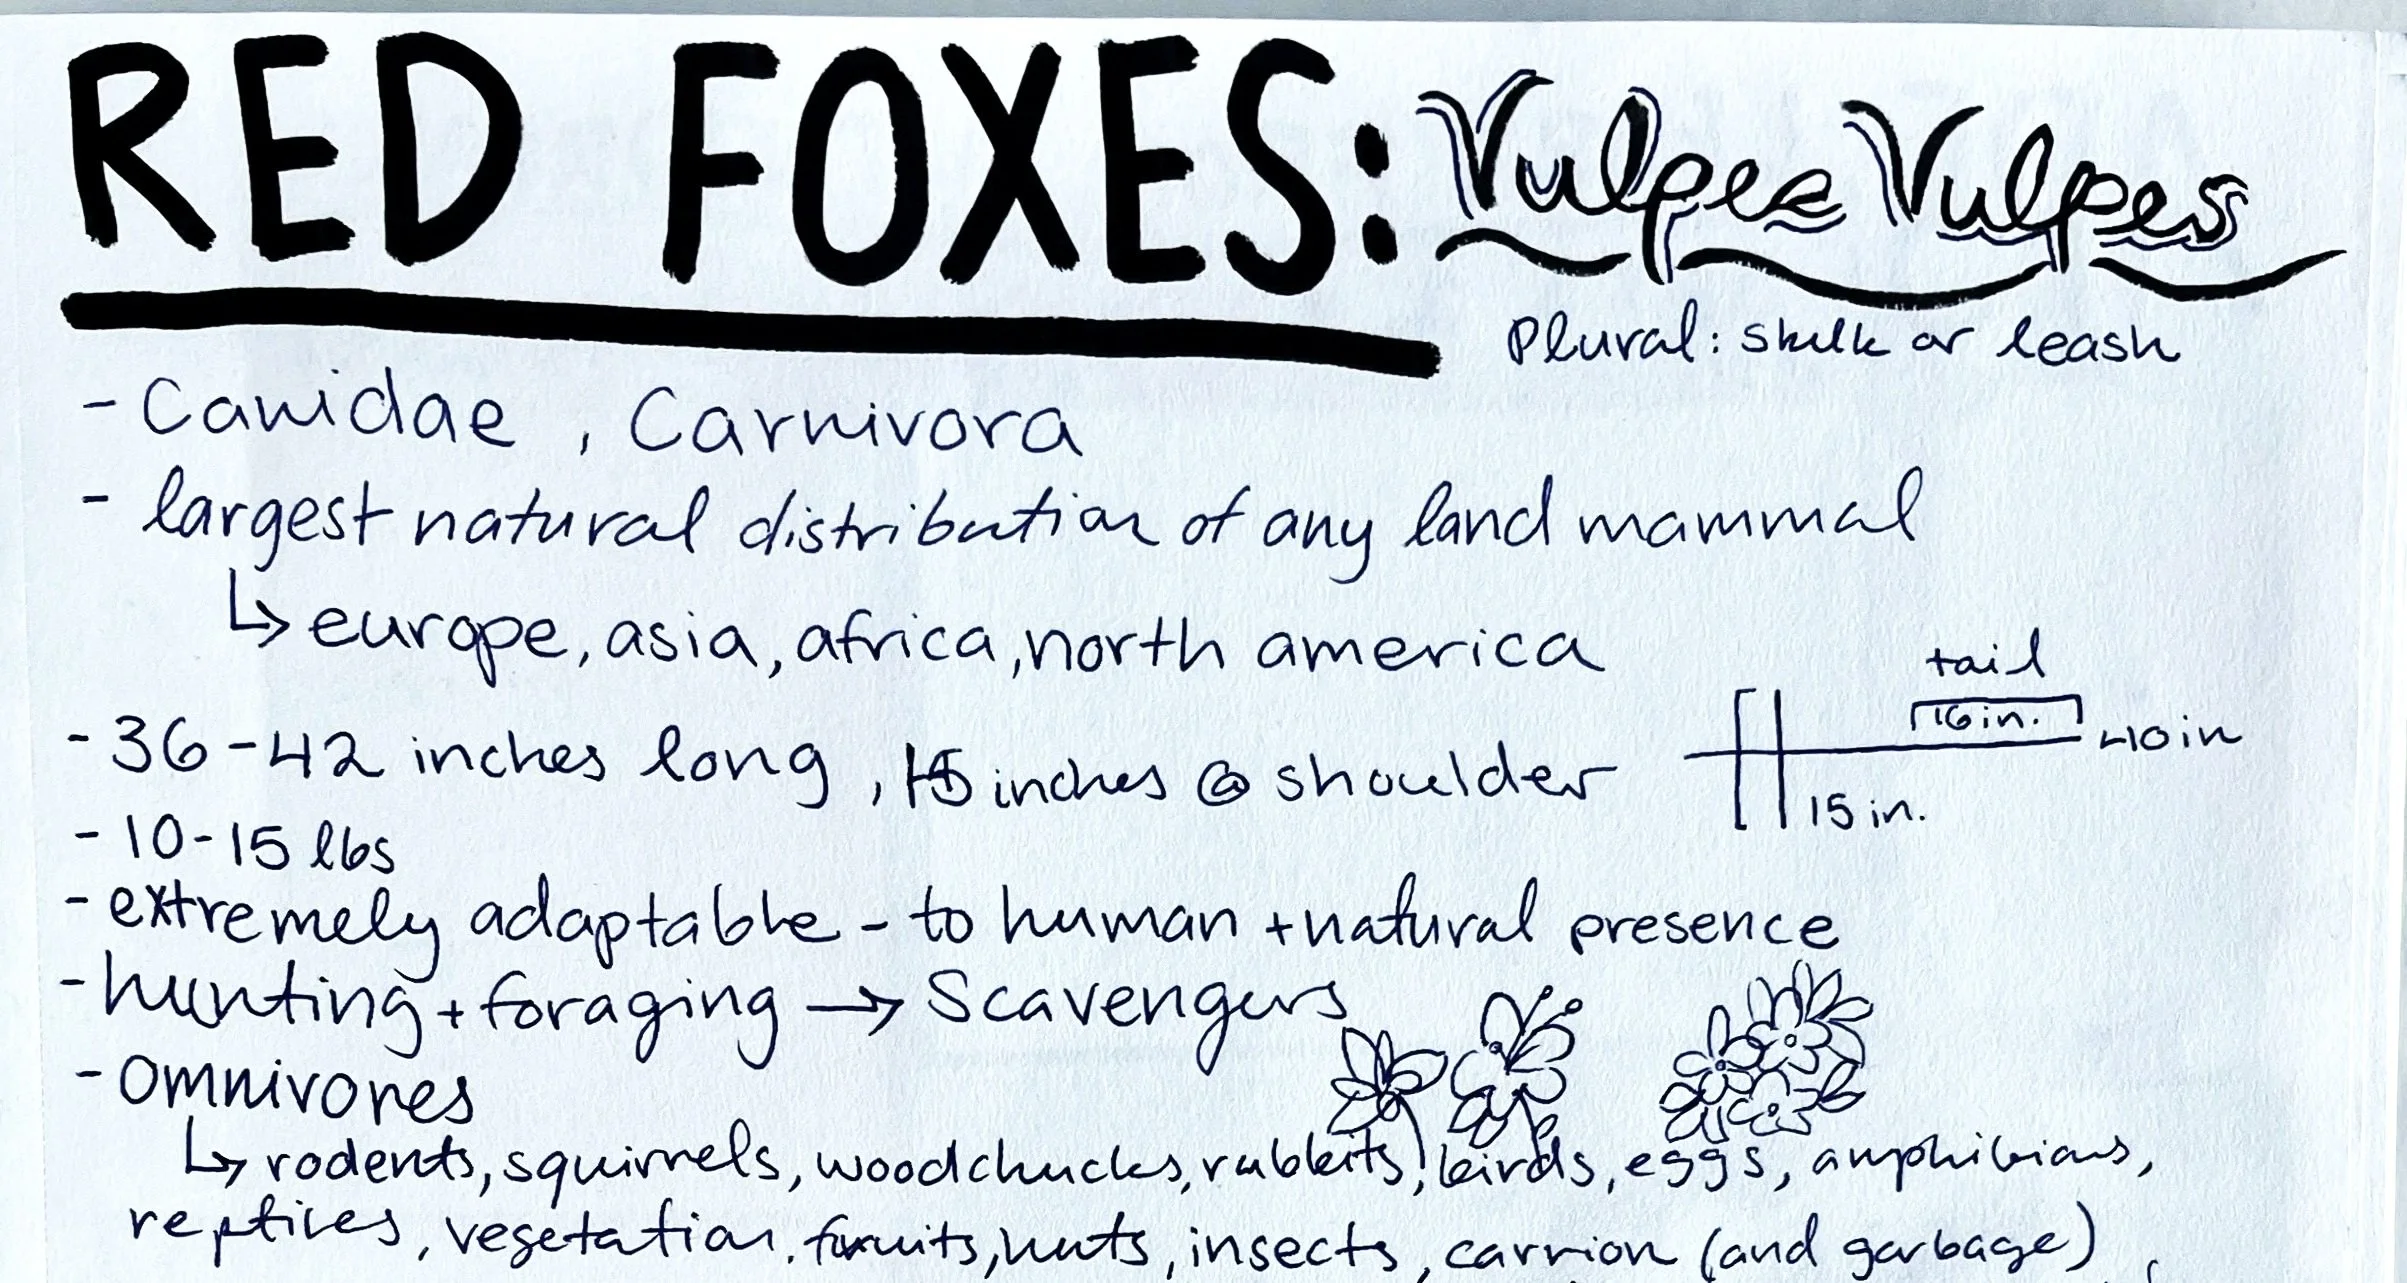 RED FOXES: Vulpes Vulpes
Plural: skulk or leash
- Canidae, Carnivora
- largest natural distribution of any land mammal
↳ europe, asia, africa, north america
tail
16 in.
40 in
- 36-42 inches long, 15 inches @ shoulder
15 in.
- 10-15 lbs
- extremely adaptable - to human + natural presence
- hunting + foraging → Scavengers
- omnivores
↳ rodents, squirrels, woodchucks, rabbits, birds, eggs, amphibians,
reptiles, vegetation, fruits, nuts, insects, carrion (and garbage)